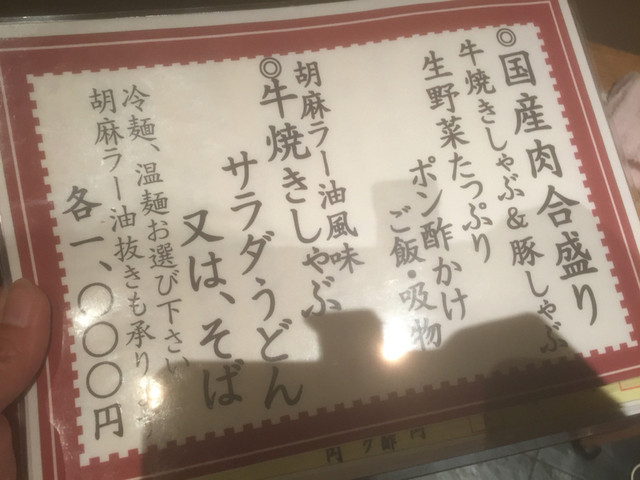 ◎国産肉合盛り
牛焼きしゃぶ&豚しゃぶ
生野菜たっぷり
ポン酢かけ
ご飯・吸物
胡麻ラー油風味
◎牛焼きしゃぶ
サラダうどん
又は、そば
冷麺、温麺お選び下さい
胡麻ラー油抜きも承り
各一、〇〇〇円